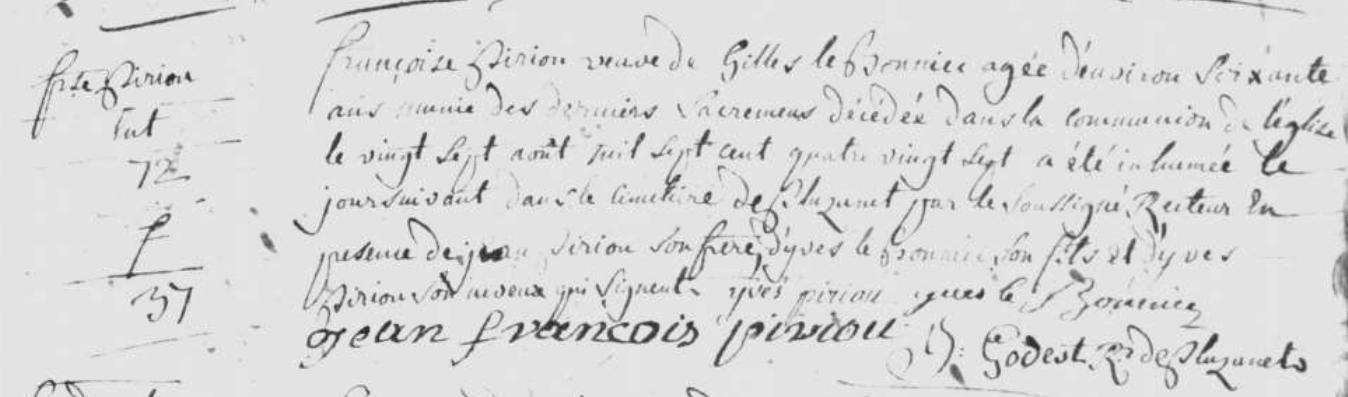 frse Pirion
Int
72
f
37
françoise Pirion veuve de Gilles le Bonniec agée d'environ Soixante
ans munie des derniers Sacremens décédée dans la communion de l'église
le vingt Sept août mil Sept cent quatre vingt Sept a été inhumée le
jour suivant dans le cimetiere de Pluzunet par le soussigné Recteur En
presence de jean pirion son frere, d'yves le Bonniec son fils et d'yves
Pirion son neveux qui signent. yves piriou yves le Bonniec
jean françois piriou
Godest. Rr de Pluzunet